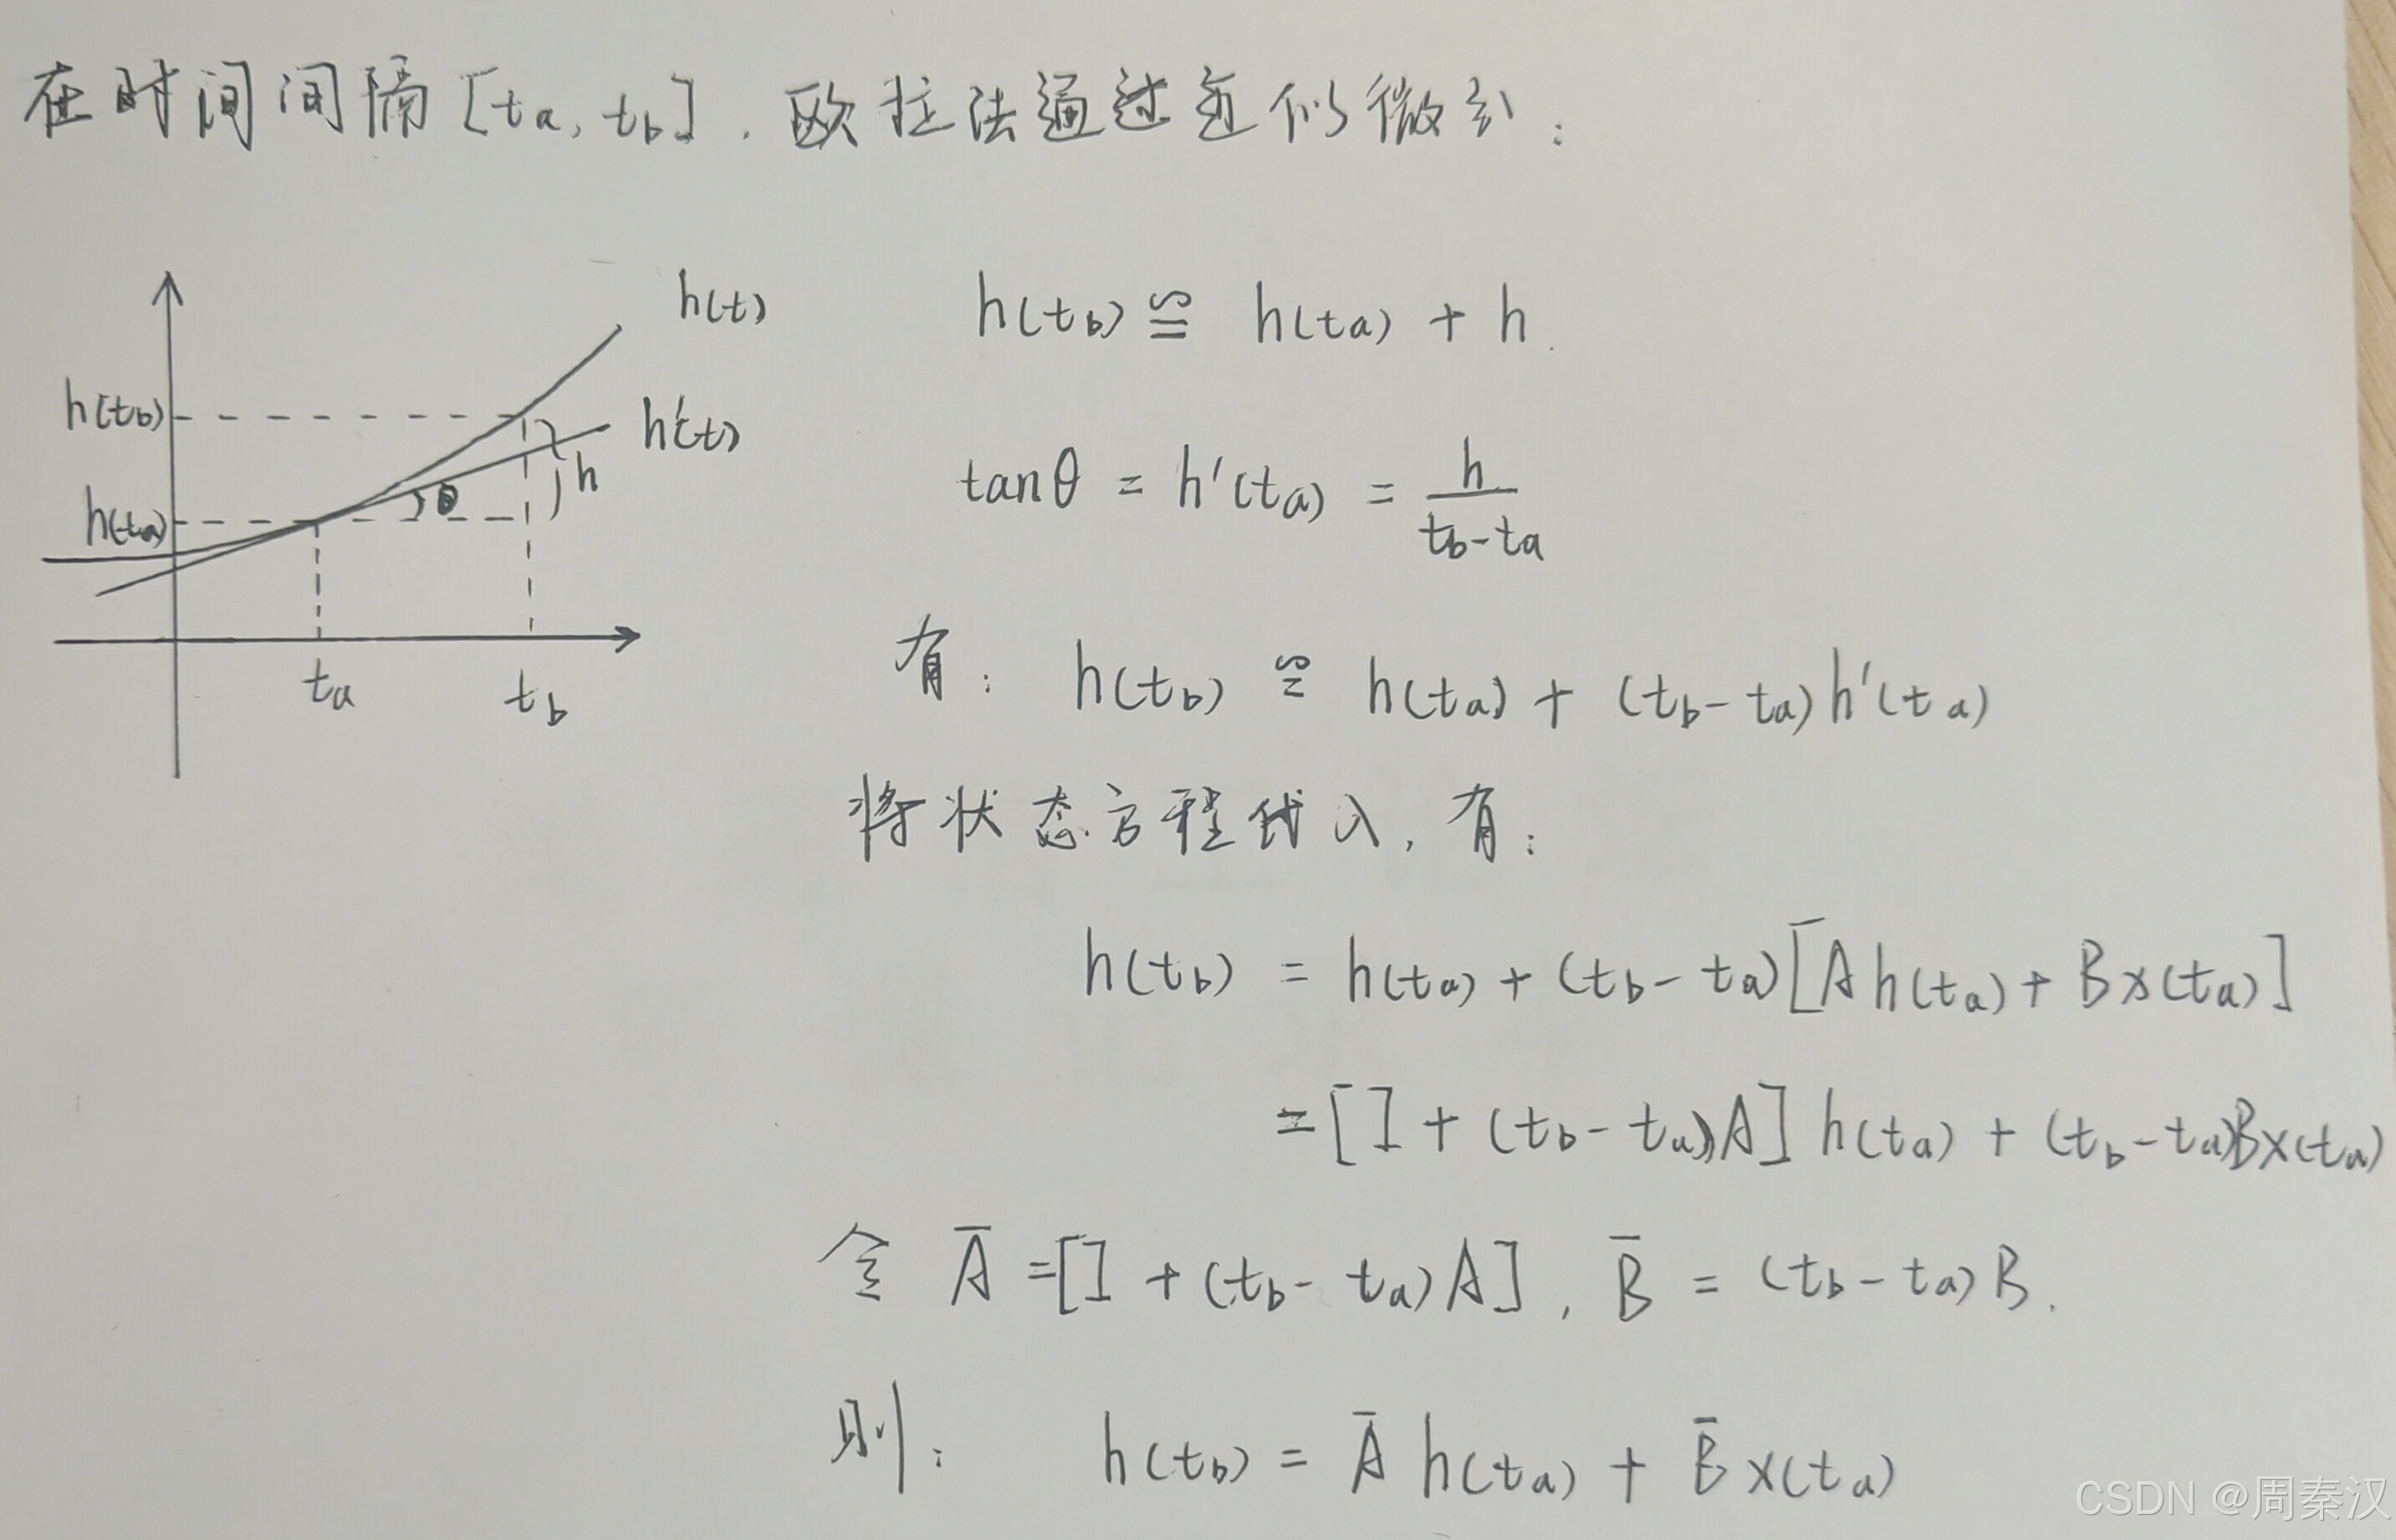 在时间间隔[ta, tb], 欧拉法通过近似微分:
h(t)
h(tb) ≌ h(ta) + h.
h(tb)
h'(t)
h
θ
h(ta)
tanθ = h'(ta) = h/(tb-ta)
ta
tb
有: h(tb) ≌ h(ta) + (tb-ta)h'(ta)
将状态方程代入, 有:
h(tb) = h(ta) + (tb-ta)[Ah(ta) + Bx(ta)]
=[I + (tb-ta)A] h(ta) + (tb-ta)Bx(ta)
令 A̅ =[I + (tb-ta)A], B̅ = (tb-ta)B.
则: h(tb) = A̅ h(ta) + B̅ x(ta)
CSDN @周秦汉